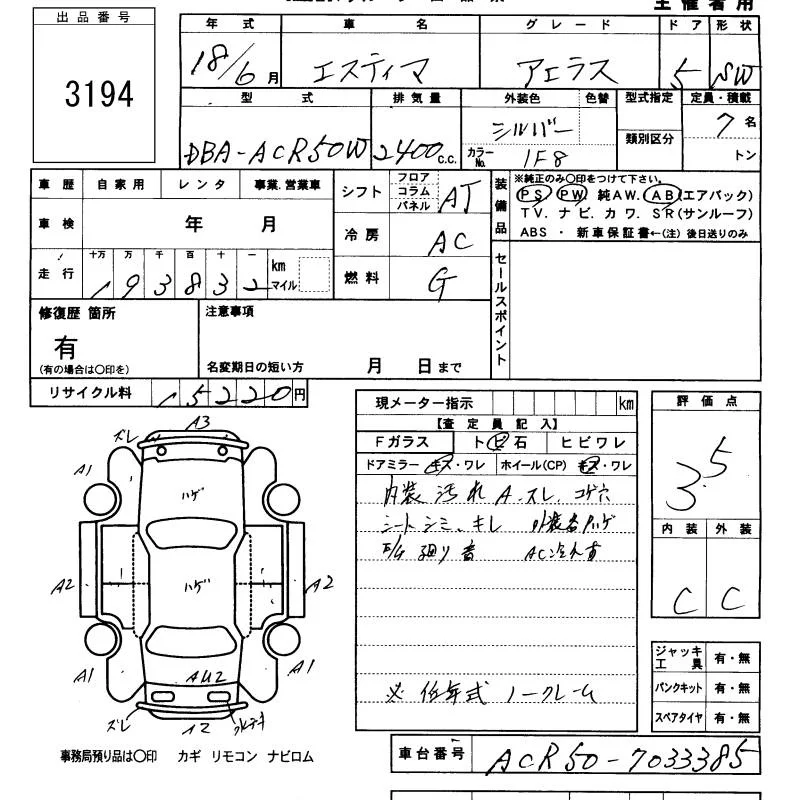 主催者用
出品番号
3194
年式 車名 グレード ドア 形状
18/6月 エスティマ アエラス 5 SW
型式 排気量 外装色 色替 型式指定 定員・積載
DBA-ACR50W 2400c.c. シルバー 類別区分 7名
カラーNo. 1F8 トン
車歴 自家用 レンタ 事業.営業車
車検 年 月
走行 十万 万 千 百 十 一
1 9 3 8 3 2 km マイル
シフト フロア コラム パネル AT
冷房 AC
燃料 G
装備品
※純正のみ〇印をつけて下さい。
PS PW. 純AW. AB(エアバック)
TV. ナビ. カワ. SR(サンルーフ)
ABS ・ 新車保証書←(注) 後日送りのみ
セールスポイント
修復歴 箇所
有
(有の場合は〇印を)
注意事項
名変期日の短い方 月 日まで
リサイクル料 15220円
現メーター指示 km
【査定員記入】
Fガラス トビ石 ヒビワレ
ドアミラー キズ・ワレ ホイール(CP) キズ・ワレ
内装 汚れ A.スレ コゲ穴
シート シミ、キレ 外装各ハゲ
E/G 廻り音 AC冷不良
※ 低年式 ノークレーム
評価点
3.5
内装 外装
C C
ジャッキ工具 有・無
パンクキット 有・無
スペアタイヤ 有・無
車台番号 ACR50-7033385
A3
ズレ
A1
ハゲ
A2
ハゲ
A2
A1
A1
AU2
ズレ
A2
事務局預り品は〇印 カギ リモコン ナビロム